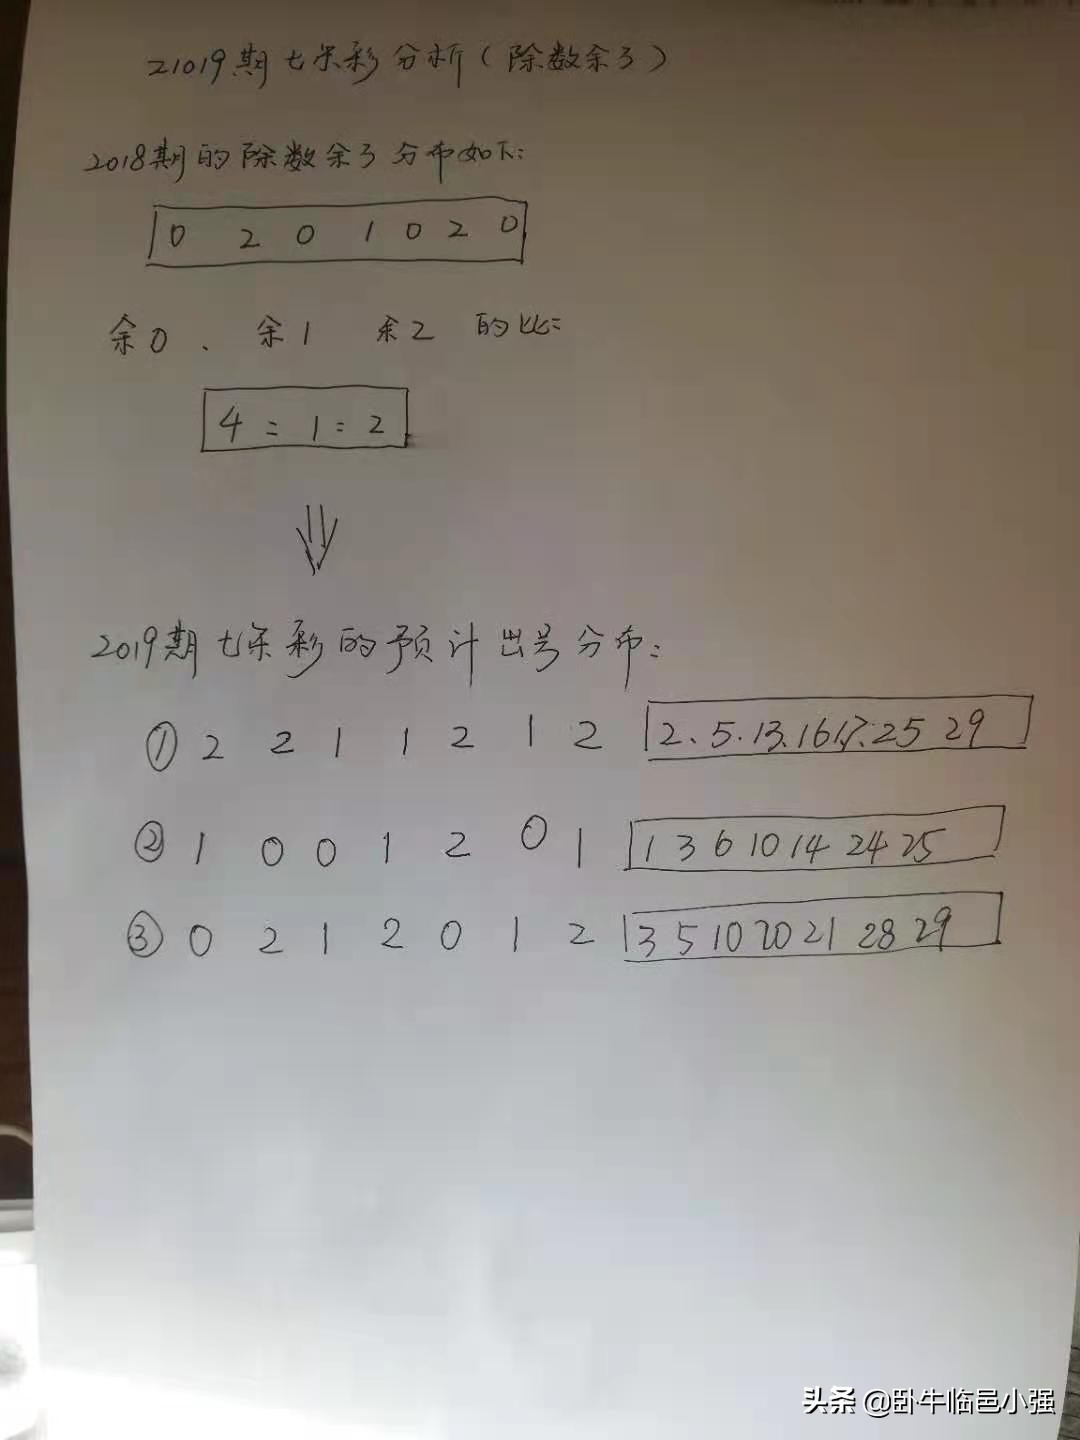 21019期七乐彩分析(除数余3)
2018期的除数余3分布如下:
0 2 0 1 0 2 0
余0、余1 余2 的比:
4:1:2
2019期七乐彩的预计出号分布:
① 2 2 1 1 2 1 2 2、5.13.16.17.25 29
② 1 0 0 1 2 0 1 1 3 6 10 14 24 25
③ 0 2 1 2 0 1 2 3 5 10 20 21 28 29
头条 @卧牛临邑小强